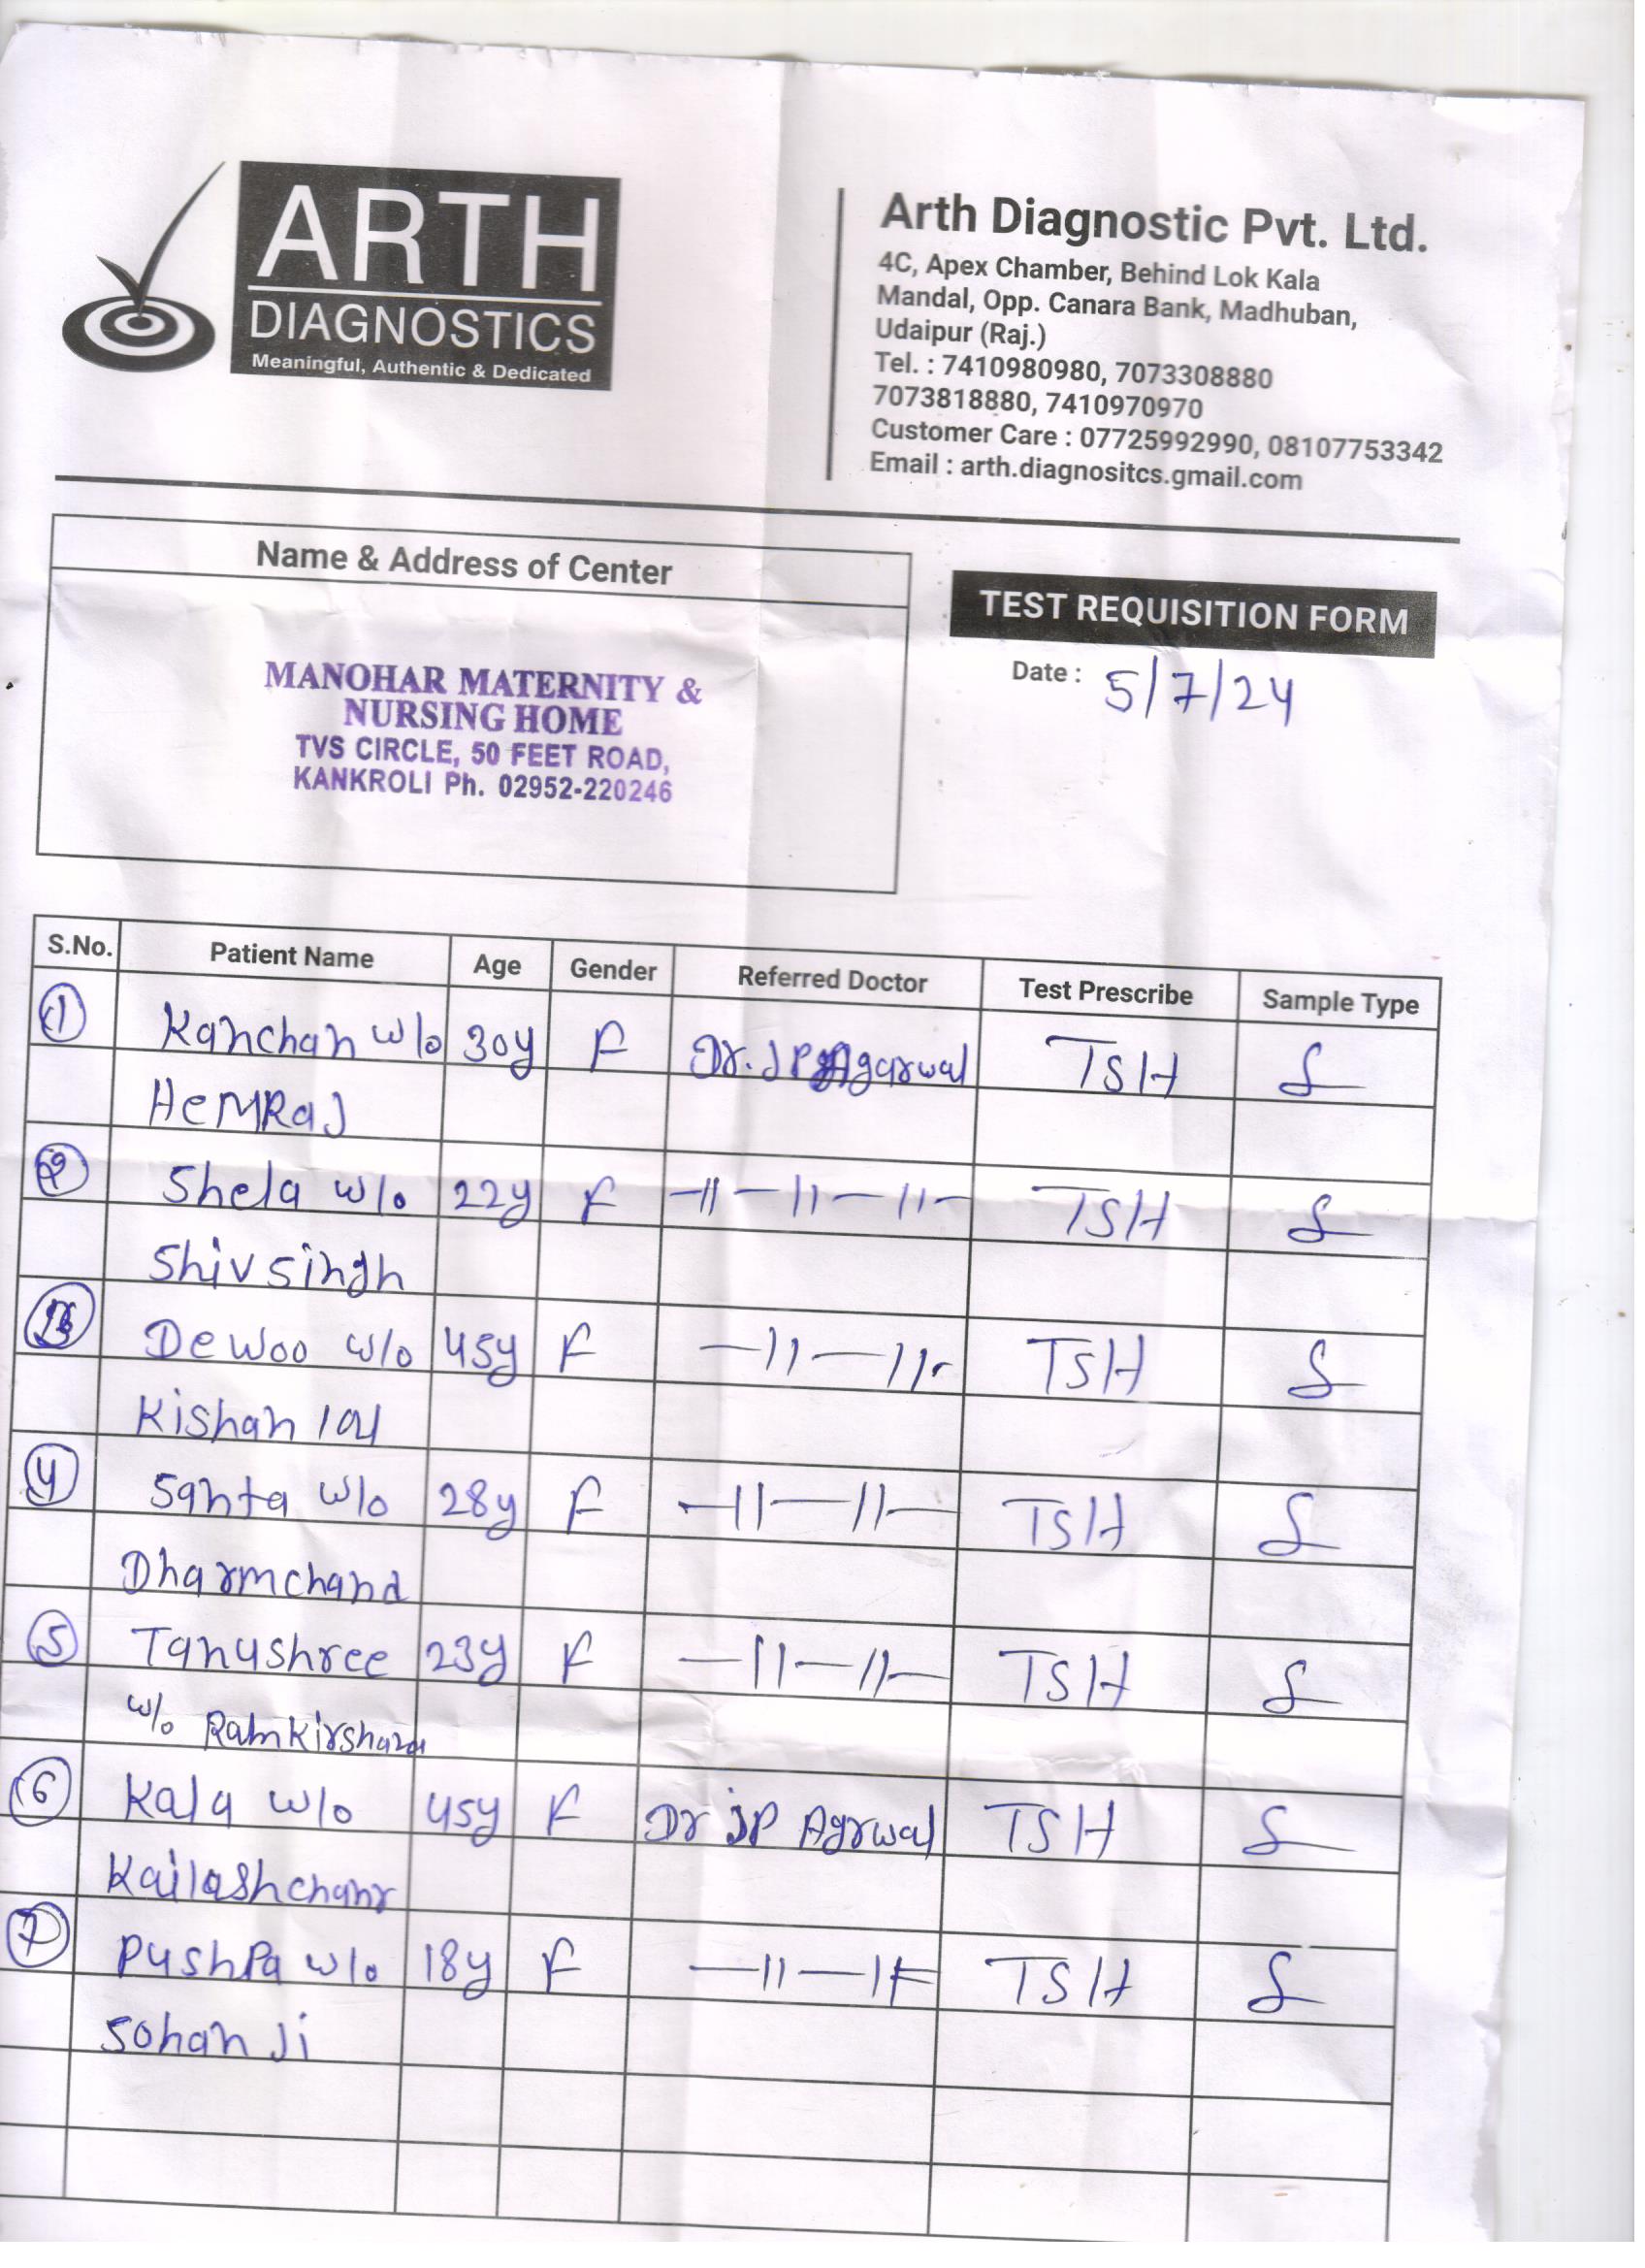 ARTH
DIAGNOSTICS
Meaningful, Authentic & Dedicated
Arth Diagnostic Pvt. Ltd.
4C, Apex Chamber, Behind Lok Kala
Mandal, Opp. Canara Bank, Madhuban,
Udaipur (Raj.)
Tel. : 7410980980, 7073308880
7073818880, 7410970970
Customer Care : 07725992990, 08107753342
Email : arth.diagnositcs.gmail.com
Name & Address of Center
MANOHAR MATERNITY &
NURSING HOME
TVS CIRCLE, 50 FEET ROAD,
KANKROLI Ph. 02952-220246
TEST REQUISITION FORM
Date : 5/7/24
S.No. Patient Name Age Gender Referred Doctor Test Prescribe Sample Type
1 Kanchan w/o 30y F Dr. JP Agarwal TSH S
HemRaJ
2 Shela w/o 22y F -11-11-11- TSH S
Shivsingh
3 Dewoo w/o 45y F -11-11- TSH S
Kishan lal
4 Santa w/o 28y F -11-11- TSH S
Dharmchand
5 Tanushree 23y F -11-11- TSH S
w/o
6 Kala w/o 45y F Dr JP Agrwal TSH S
7 Pushpa w/o 18y F -11-11- TSH S
Sohan Ji